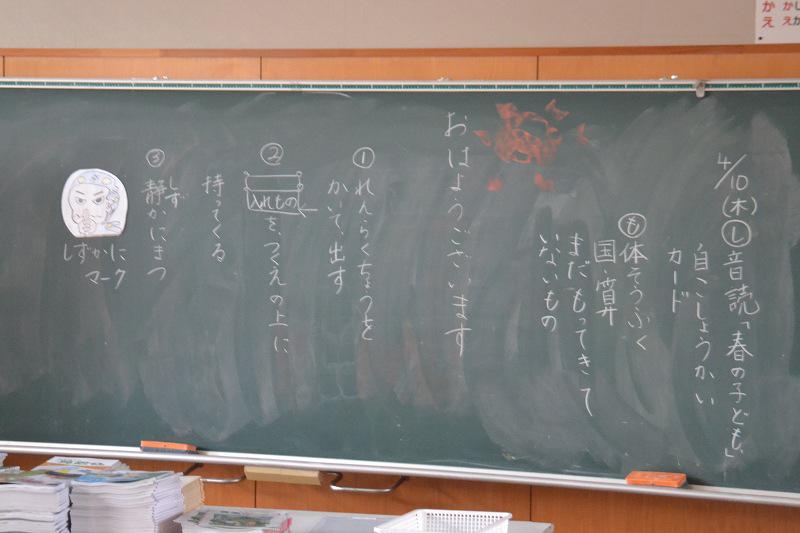 4/10(木)し音読「春の子ども」
自こしょうかい
カード
も体そうふく
国・算
まだもってきて
いないもの
おはようございます
①れんらくちょうを
かいて、出す
②
入れもの
を、つくえの上に
持ってくる
③静かにまつ
しず
しずかに
マーク